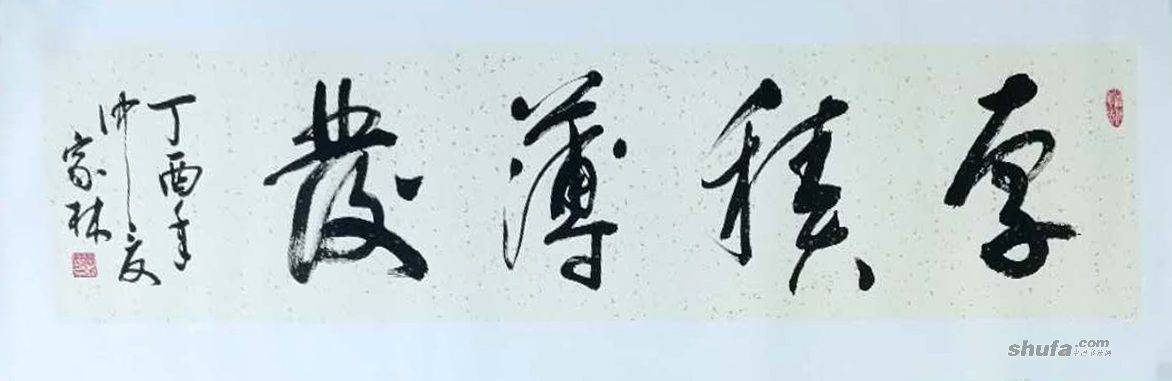 厚積薄發
丁酉年
仲夏
家林
shufa.com